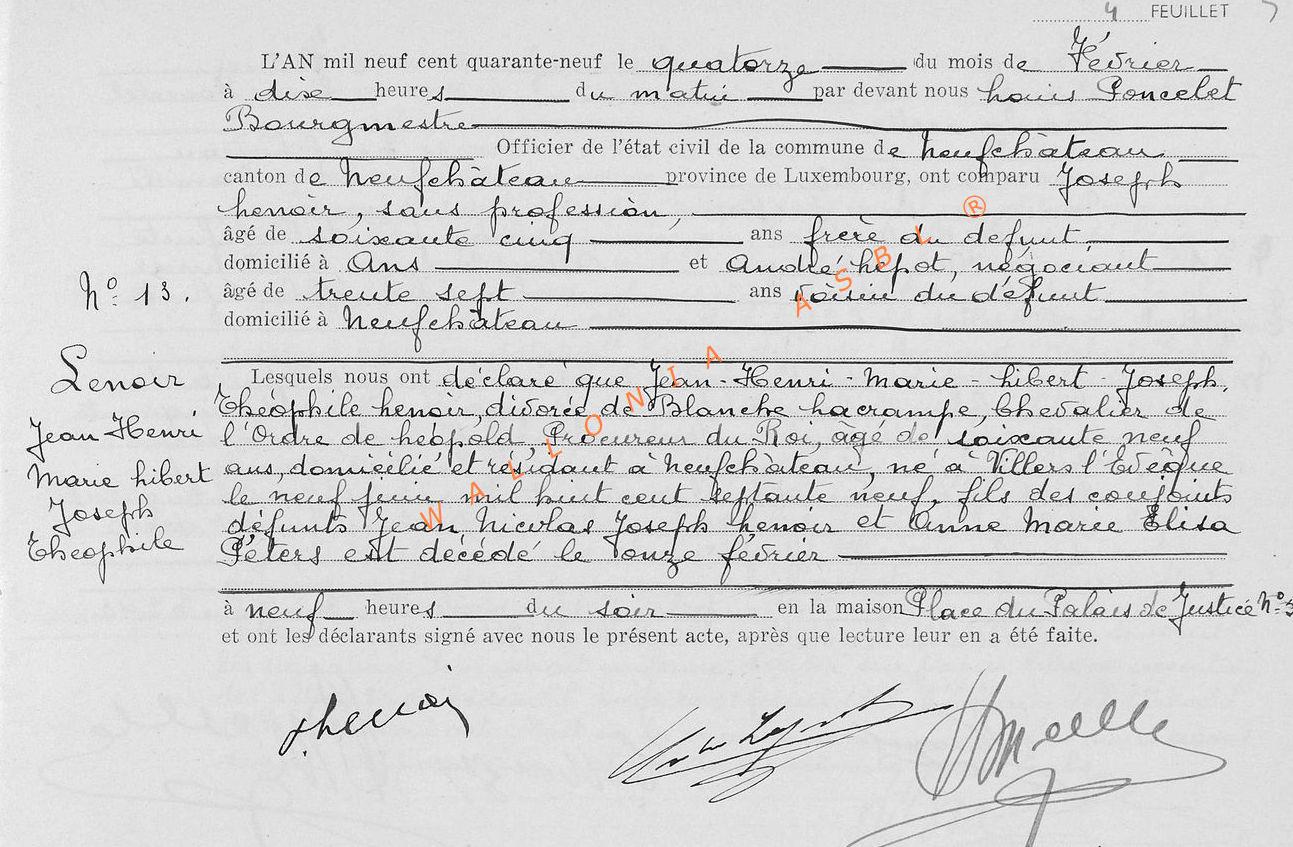 4 FEUILLET
L'AN mil neuf cent quarante-neuf le quatorze du mois de Février
à dix heures du matin par devant nous Louis Poncelet
Bourgmestre
Officier de l'état civil de la commune de Neufchâteau
canton de Neufchâteau province de Luxembourg, ont comparu Joseph
Lenoir, sans profession,
âgé de soixante cinq ans frère du défunt,
domicilié à Ans et André Lépot, négociant
N° 13. âgé de trente sept ans voisin du défunt
domicilié à Neufchâteau
Lenoir
Jean Henri
Marie Libert
Joseph
Théophile
Lesquels nous ont déclaré que Jean-Henri-Marie-Libert-Joseph,
Théophile Lenoir, divorcé de Blanche Lacrampe, Chevalier de
l'Ordre de Léopold, Procureur du Roi, âgé de soixante neuf
ans, domicilié et résidant à Neufchâteau, né à Villers l'Evêque
le neuf juin mil huit cent septante neuf, fils des conjoints
défunts Jean Nicolas Joseph Lenoir et Anne Marie Elisa
Péters est décédé le onze février
à neuf heures du soir en la maison Place du Palais de Justice N°
et ont les déclarants signé avec nous le présent acte, après que lecture leur en a été faite.
JLenoir
WALLONIA ASBL ®